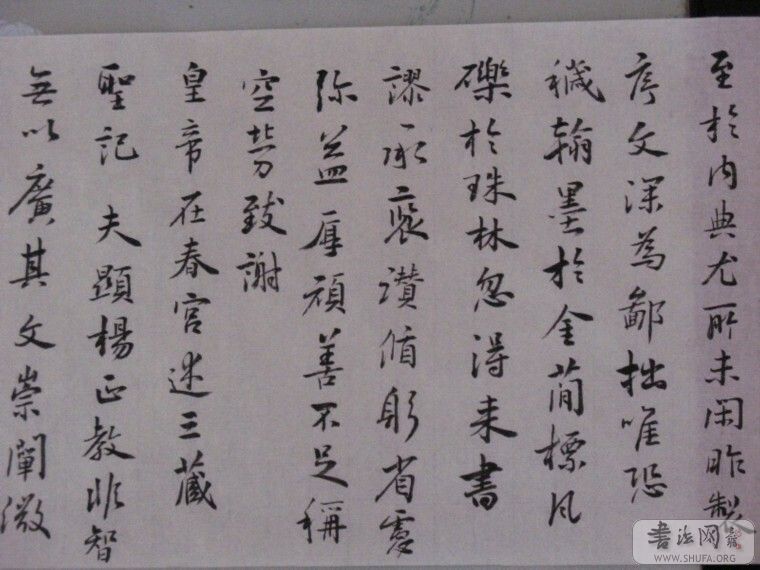 至於内典尤所未閑昨製
序文深為鄙拙唯恐
穢翰墨於金簡標瓦
礫於珠林忽得来書
謬承褒讚循躬省慮
弥益厚顔善不足稱
空勞致謝
皇帝在春宮述三藏
聖記 夫顯楊正教非智
無以廣其文崇闡微
书法网
WWW.SHUFA.ORG